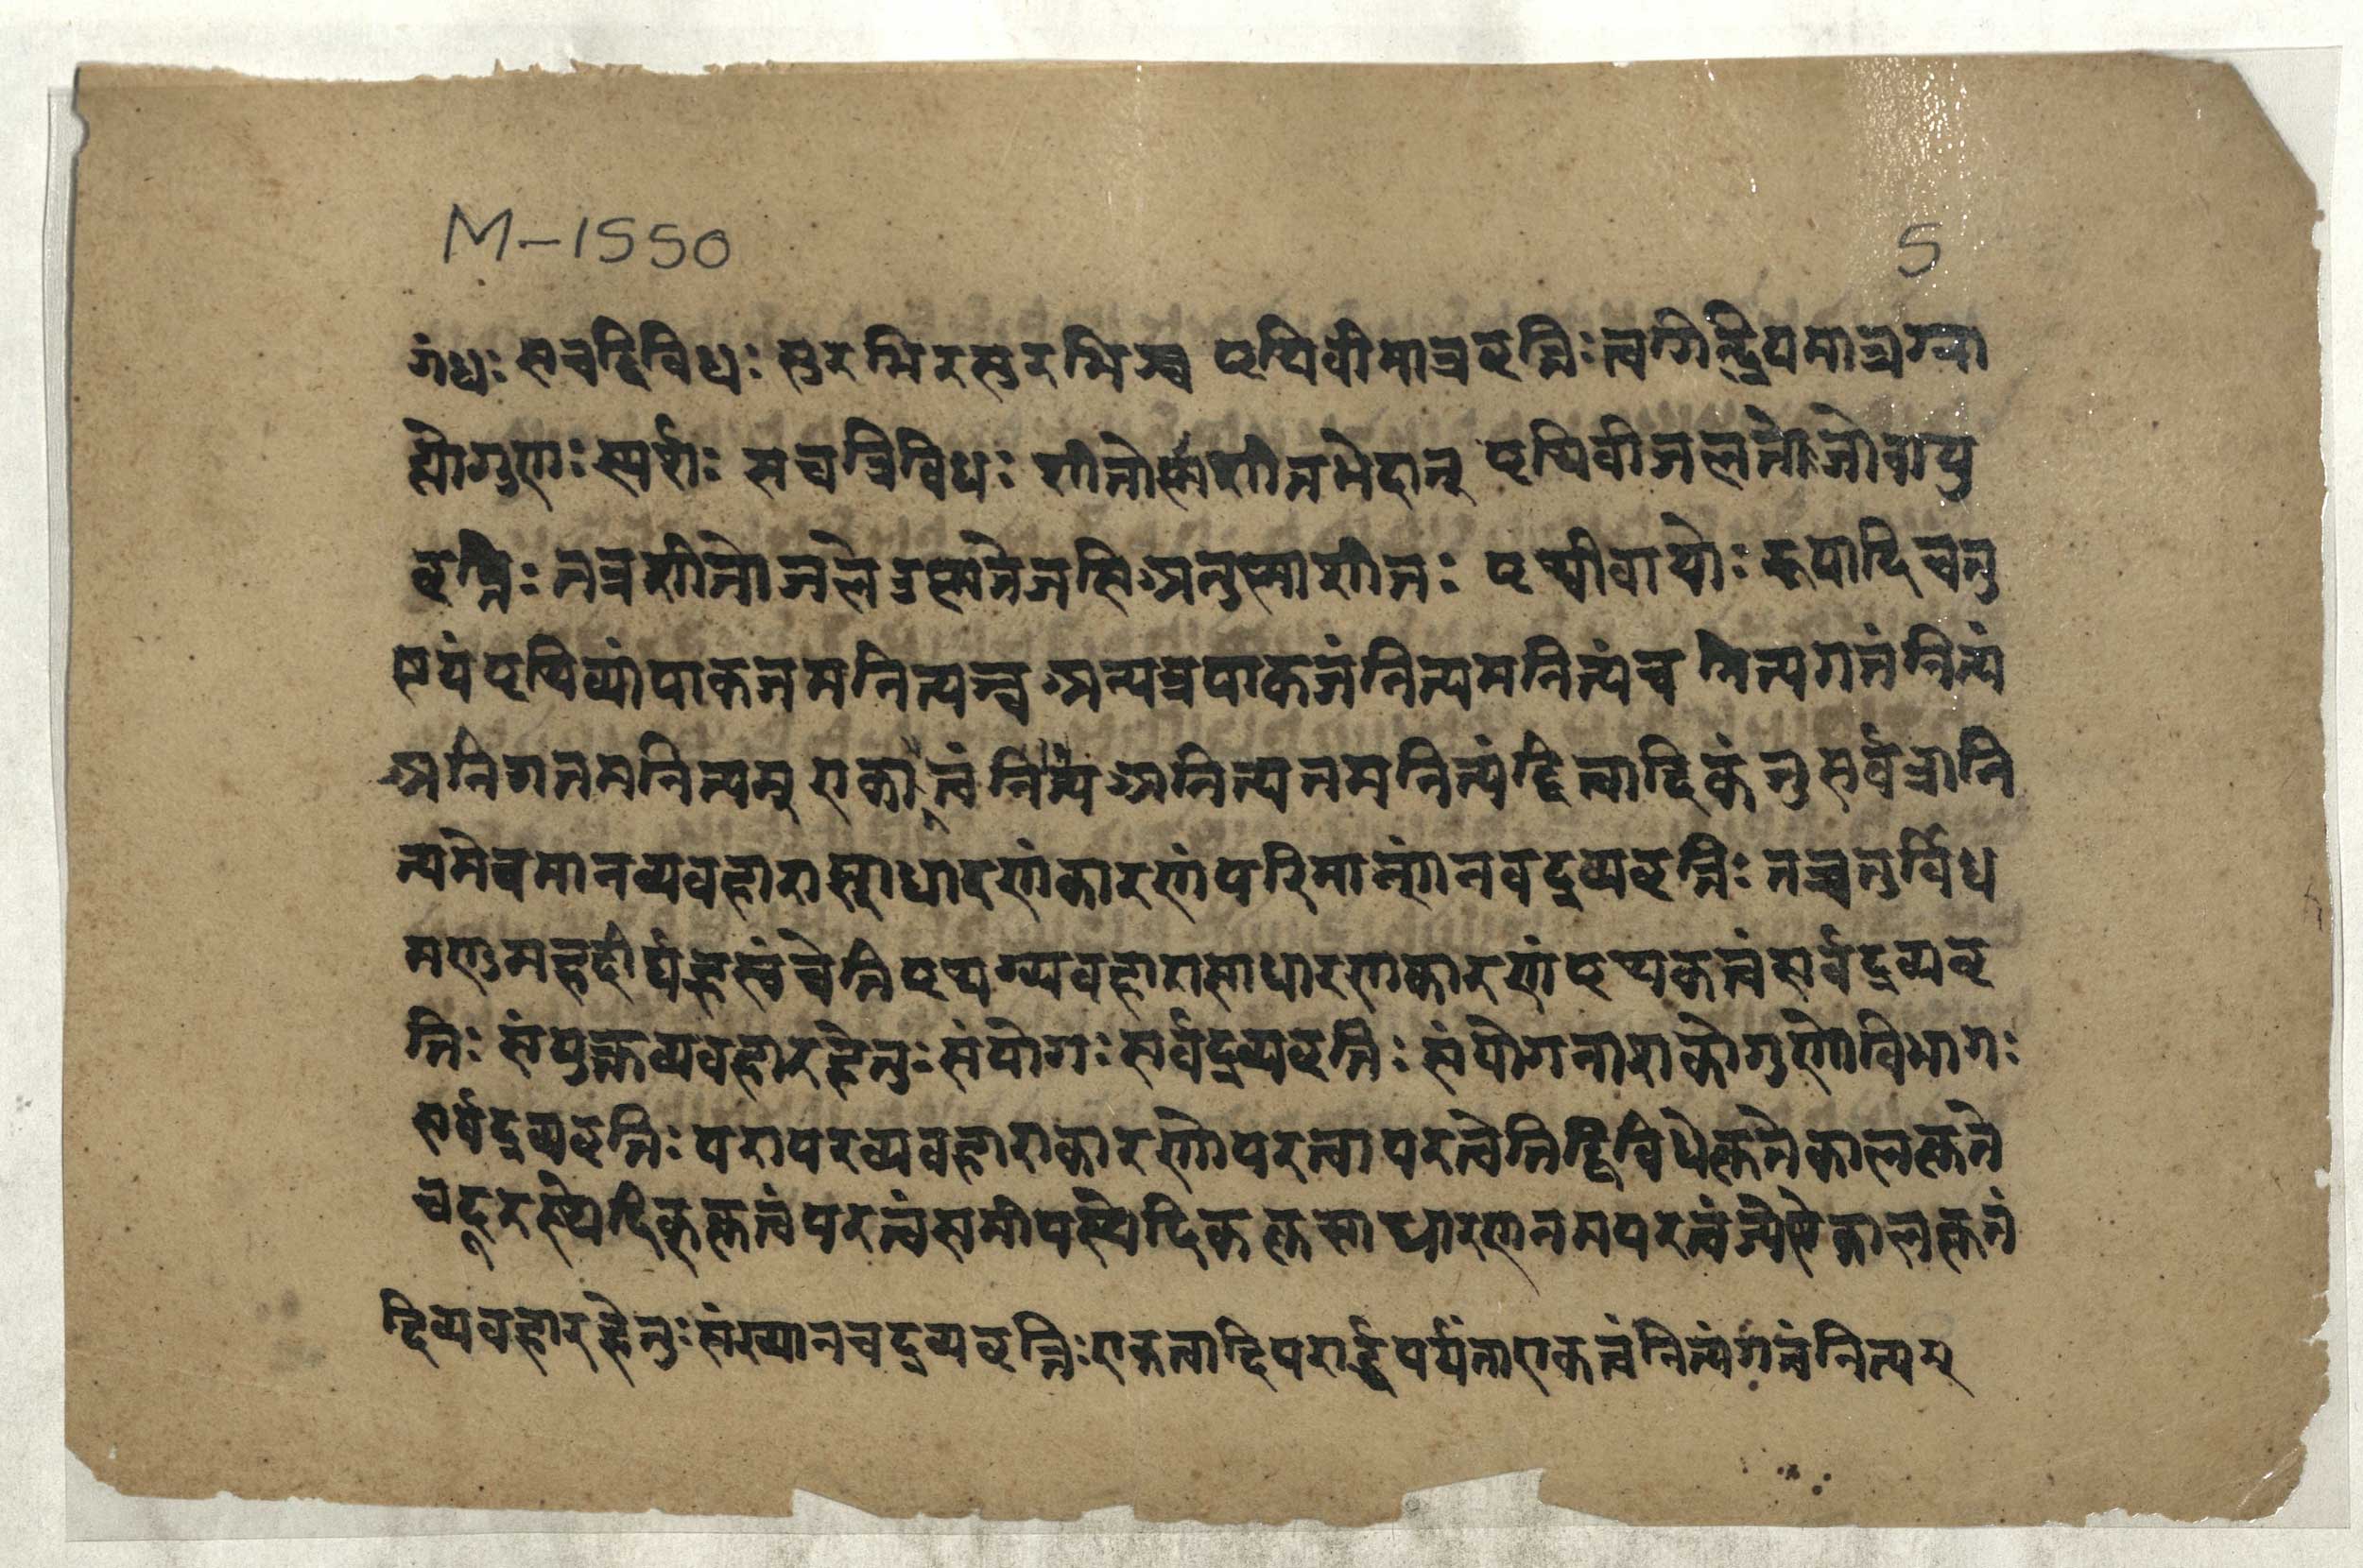 M-1550
5
गंधः सचद्विविधः सुरभिरसुरभिश्च पृथिवीमात्रवृत्तिः त्वगिन्द्रियमात्रग्रा
ह्योगुणः स्पर्शः सचत्रिविधः शीतोष्णशीतभेदात् पृथिवीजलतेजोवायु
वृत्तिः तत्रशीतोजलेउष्णतेजसिअनुष्णाशीतः पृथ्वीवाय्वोः रूपादिचतु
ष्टयंपृथिव्यांपाकजमनित्यन्च अन्यत्रपाकजंनित्यमनित्यंच नित्यगतंनित्यं
अनिगतमनित्यम् एकत्वंनित्यं अनित्यतमनित्यंद्वित्वादिकंतुसर्वत्रानि
त्यमेवमानव्यवहारासाधारणंकारणंपरिमाणंनवद्रव्यवृत्तिः तच्चतुर्विध
मणुमहद्दीर्घह्रस्वंचेतिपृथग्व्यवहारासाधारणकारणंपृथकत्वंसर्वद्रव्यवृ
त्तिः संयुक्तव्यवहारहेतुः संयोगः सर्वद्रव्यवृत्तिः संयोगनाशकोगुणोविभागः
सर्वद्रव्यवृत्तिः परापरव्यवहाराकारणोपरत्वापरत्वेतेद्विविधेकृतेकालकृते
चदूरस्थेदिक्कृतत्वंपरत्वंसमीपस्थेदिककृतसाधारणतमपरत्वंज्येष्टेकालकृतं
दिव्यवहारहेतुः संख्यानवद्रव्यवृत्तिः एकत्वादिपरार्द्धपर्यंताएकत्वंनित्यंगतंनित्यम्